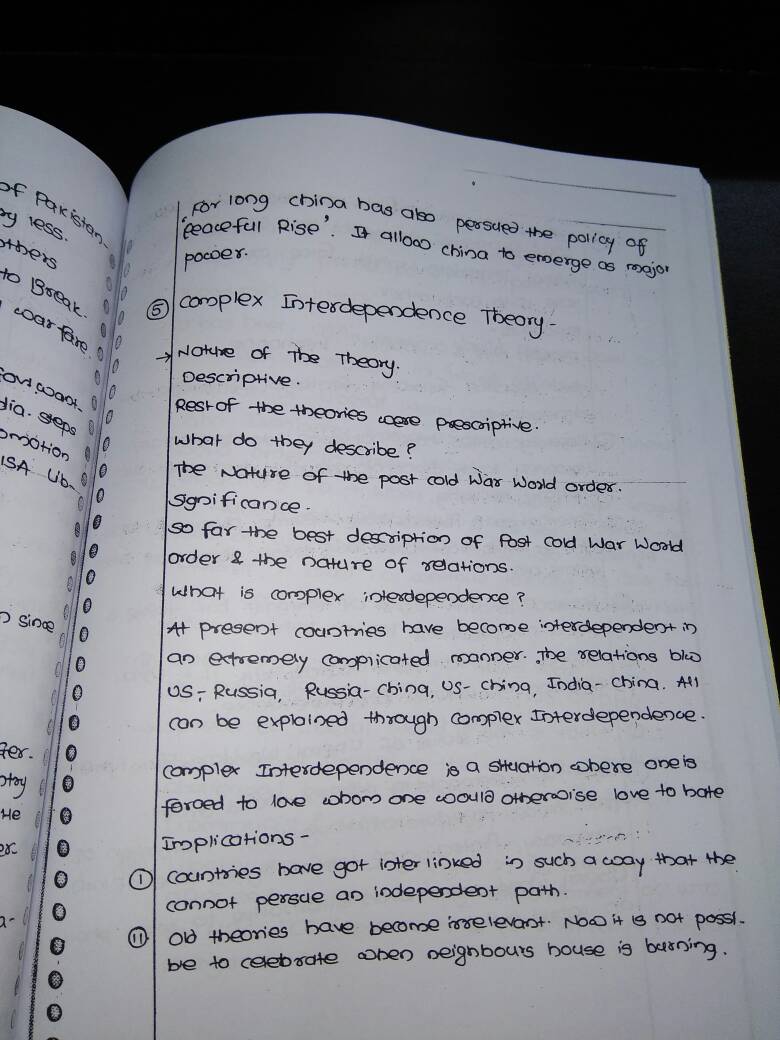 of Pakistan-
ry less.
others
to Break.
warfare.
Govt. want-
dia. steps
omotion
ISA Ub-
n since
ter.
ntry
He
er
a-
For long china has also persued the policy of
'Peacefull Rise'. It allow china to emerge as major
power.
⑤ Complex Interdependence Theory -
→ Nature of The Theory.
Descriptive.
Rest of the theories were Prescriptive.
What do they describe?
The Nature of the post cold War World order.
Significance.
So far the best description of Post Cold War World
order & the nature of relations.
What is complex interdependence?
At present countries have become interdependent in
an extremely complicated manner. The relations b/w
US-Russia, Russia-China, US-China, India-China. All
can be explained through Complex Interdependence.
Complex Interdependence is a situation where one is
forced to love whom one would otherwise love to hate
Implications -
① Countries have got inter linked in such a way that the
cannot persue an independent path.
⑪ Old theories have become irrelevant. Now it is not possi-
ble to celebrate when neighbours house is burning.